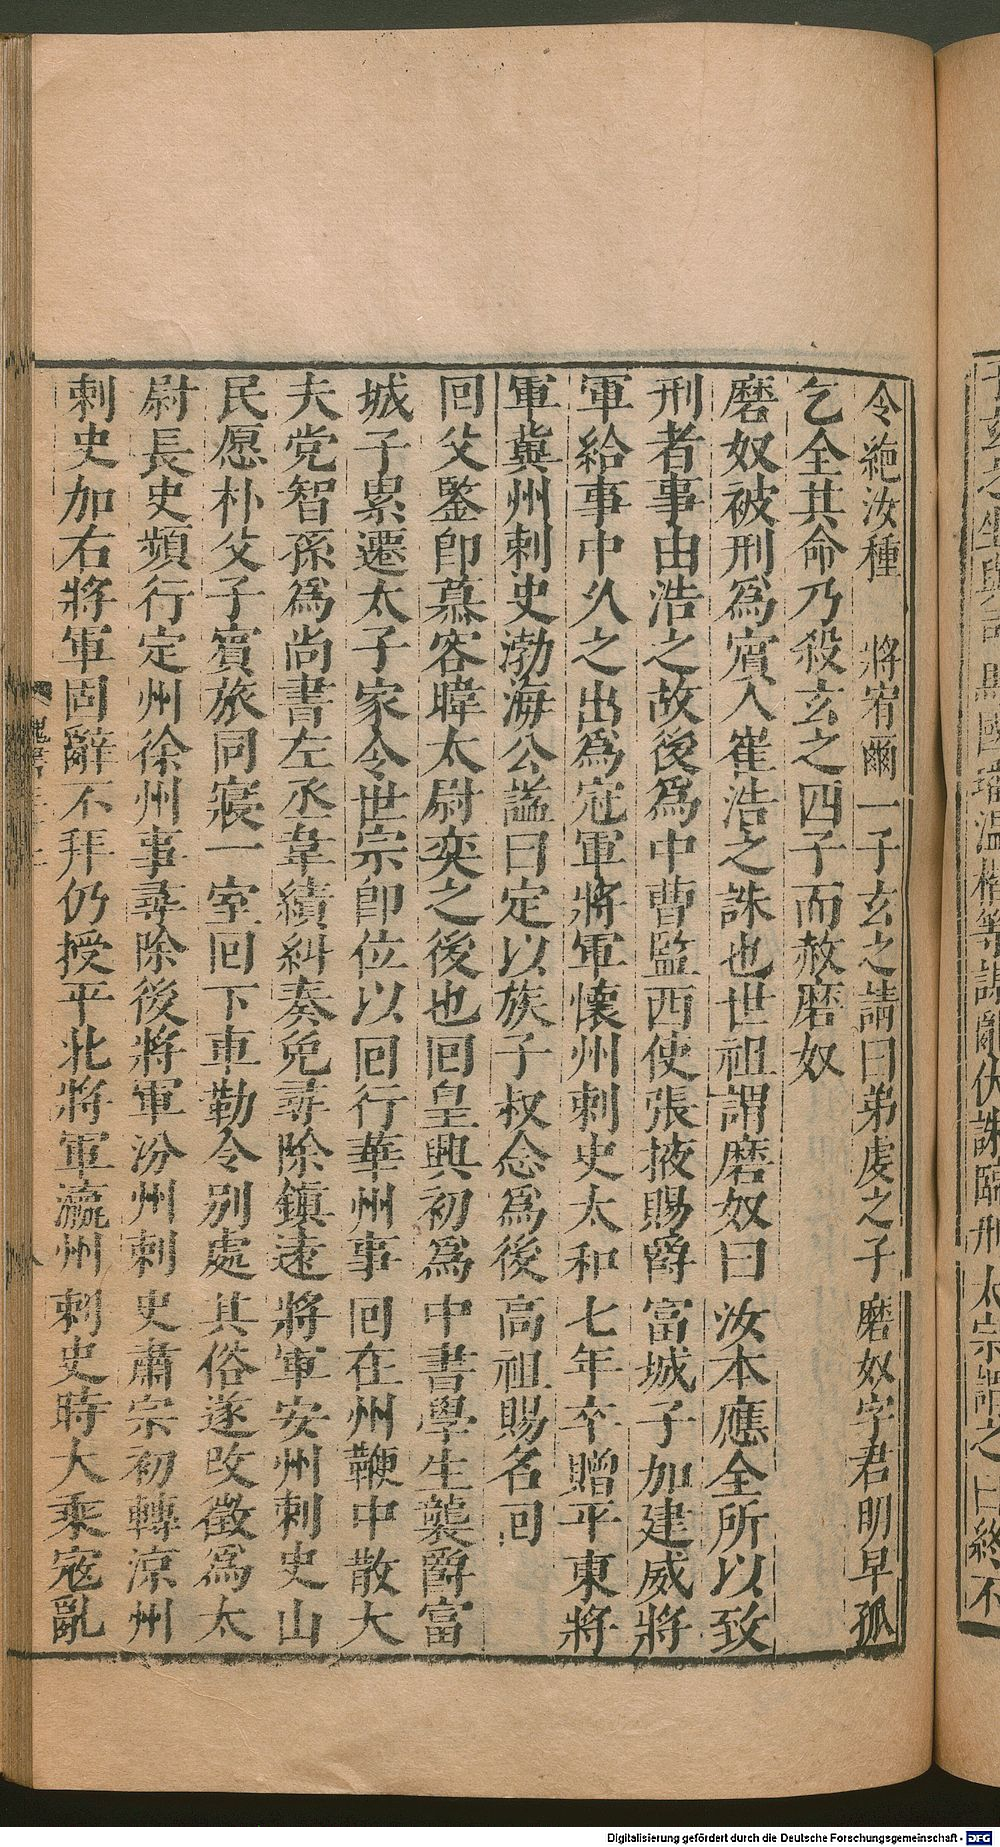 令絶汝種將宥爾一子玄之請曰弟虔之子磨奴字君明早孤
乞全其命乃殺玄之四子而赦磨奴
磨奴被刑爲宦人崔浩之誅也世祖謂磨奴曰汝本應全所以致
刑者事由浩之故後爲中曹監西使張掖賜爵富城子加建威將
軍給事中久之出爲冠軍將軍懷州刺史太和七年卒贈平東將
軍冀州刺史渤海公諡曰定以族子叔念爲後高祖賜名回
回父鑒即慕容暐太尉奕之後也回皇興初爲中書學生襲爵富
城子累遷太子家令世宗即位以回行華州事回在州鞭中散大
夫党智孫爲尚書左丞韋績糾奏免尋除鎮遠將軍安州刺史山
民愿朴父子賓旅同寢一室回下車勒令别處其俗遂改徵爲太
尉長史頻行定州徐州事尋除後將軍汾州刺史肅宗初轉涼州
刺史加右將軍固辭不拜仍授平北將軍瀛州刺史時大乘寇亂
Digitalisierung gefördert durch die Deutsche Forschungsgemeinschaft - DFG